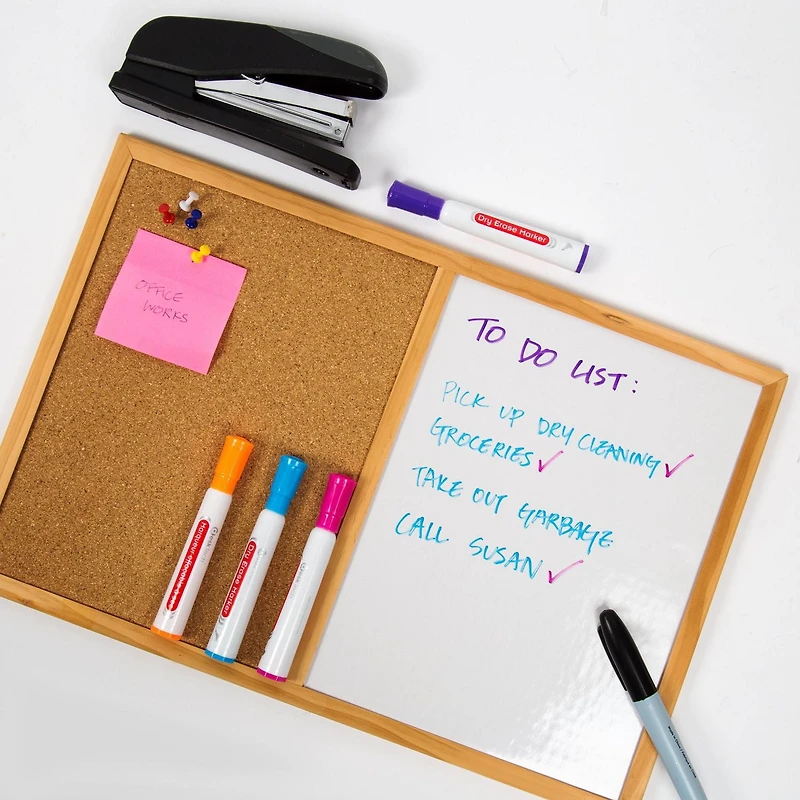 Dry Erase Marker
OFFICE
WORKS
TO DO LIST:
PICK UP DRY CLEANING ✓
GROCERIES ✓
TAKE OUT GARBAGE
CALL SUSAN ✓
Dry Erase Marker